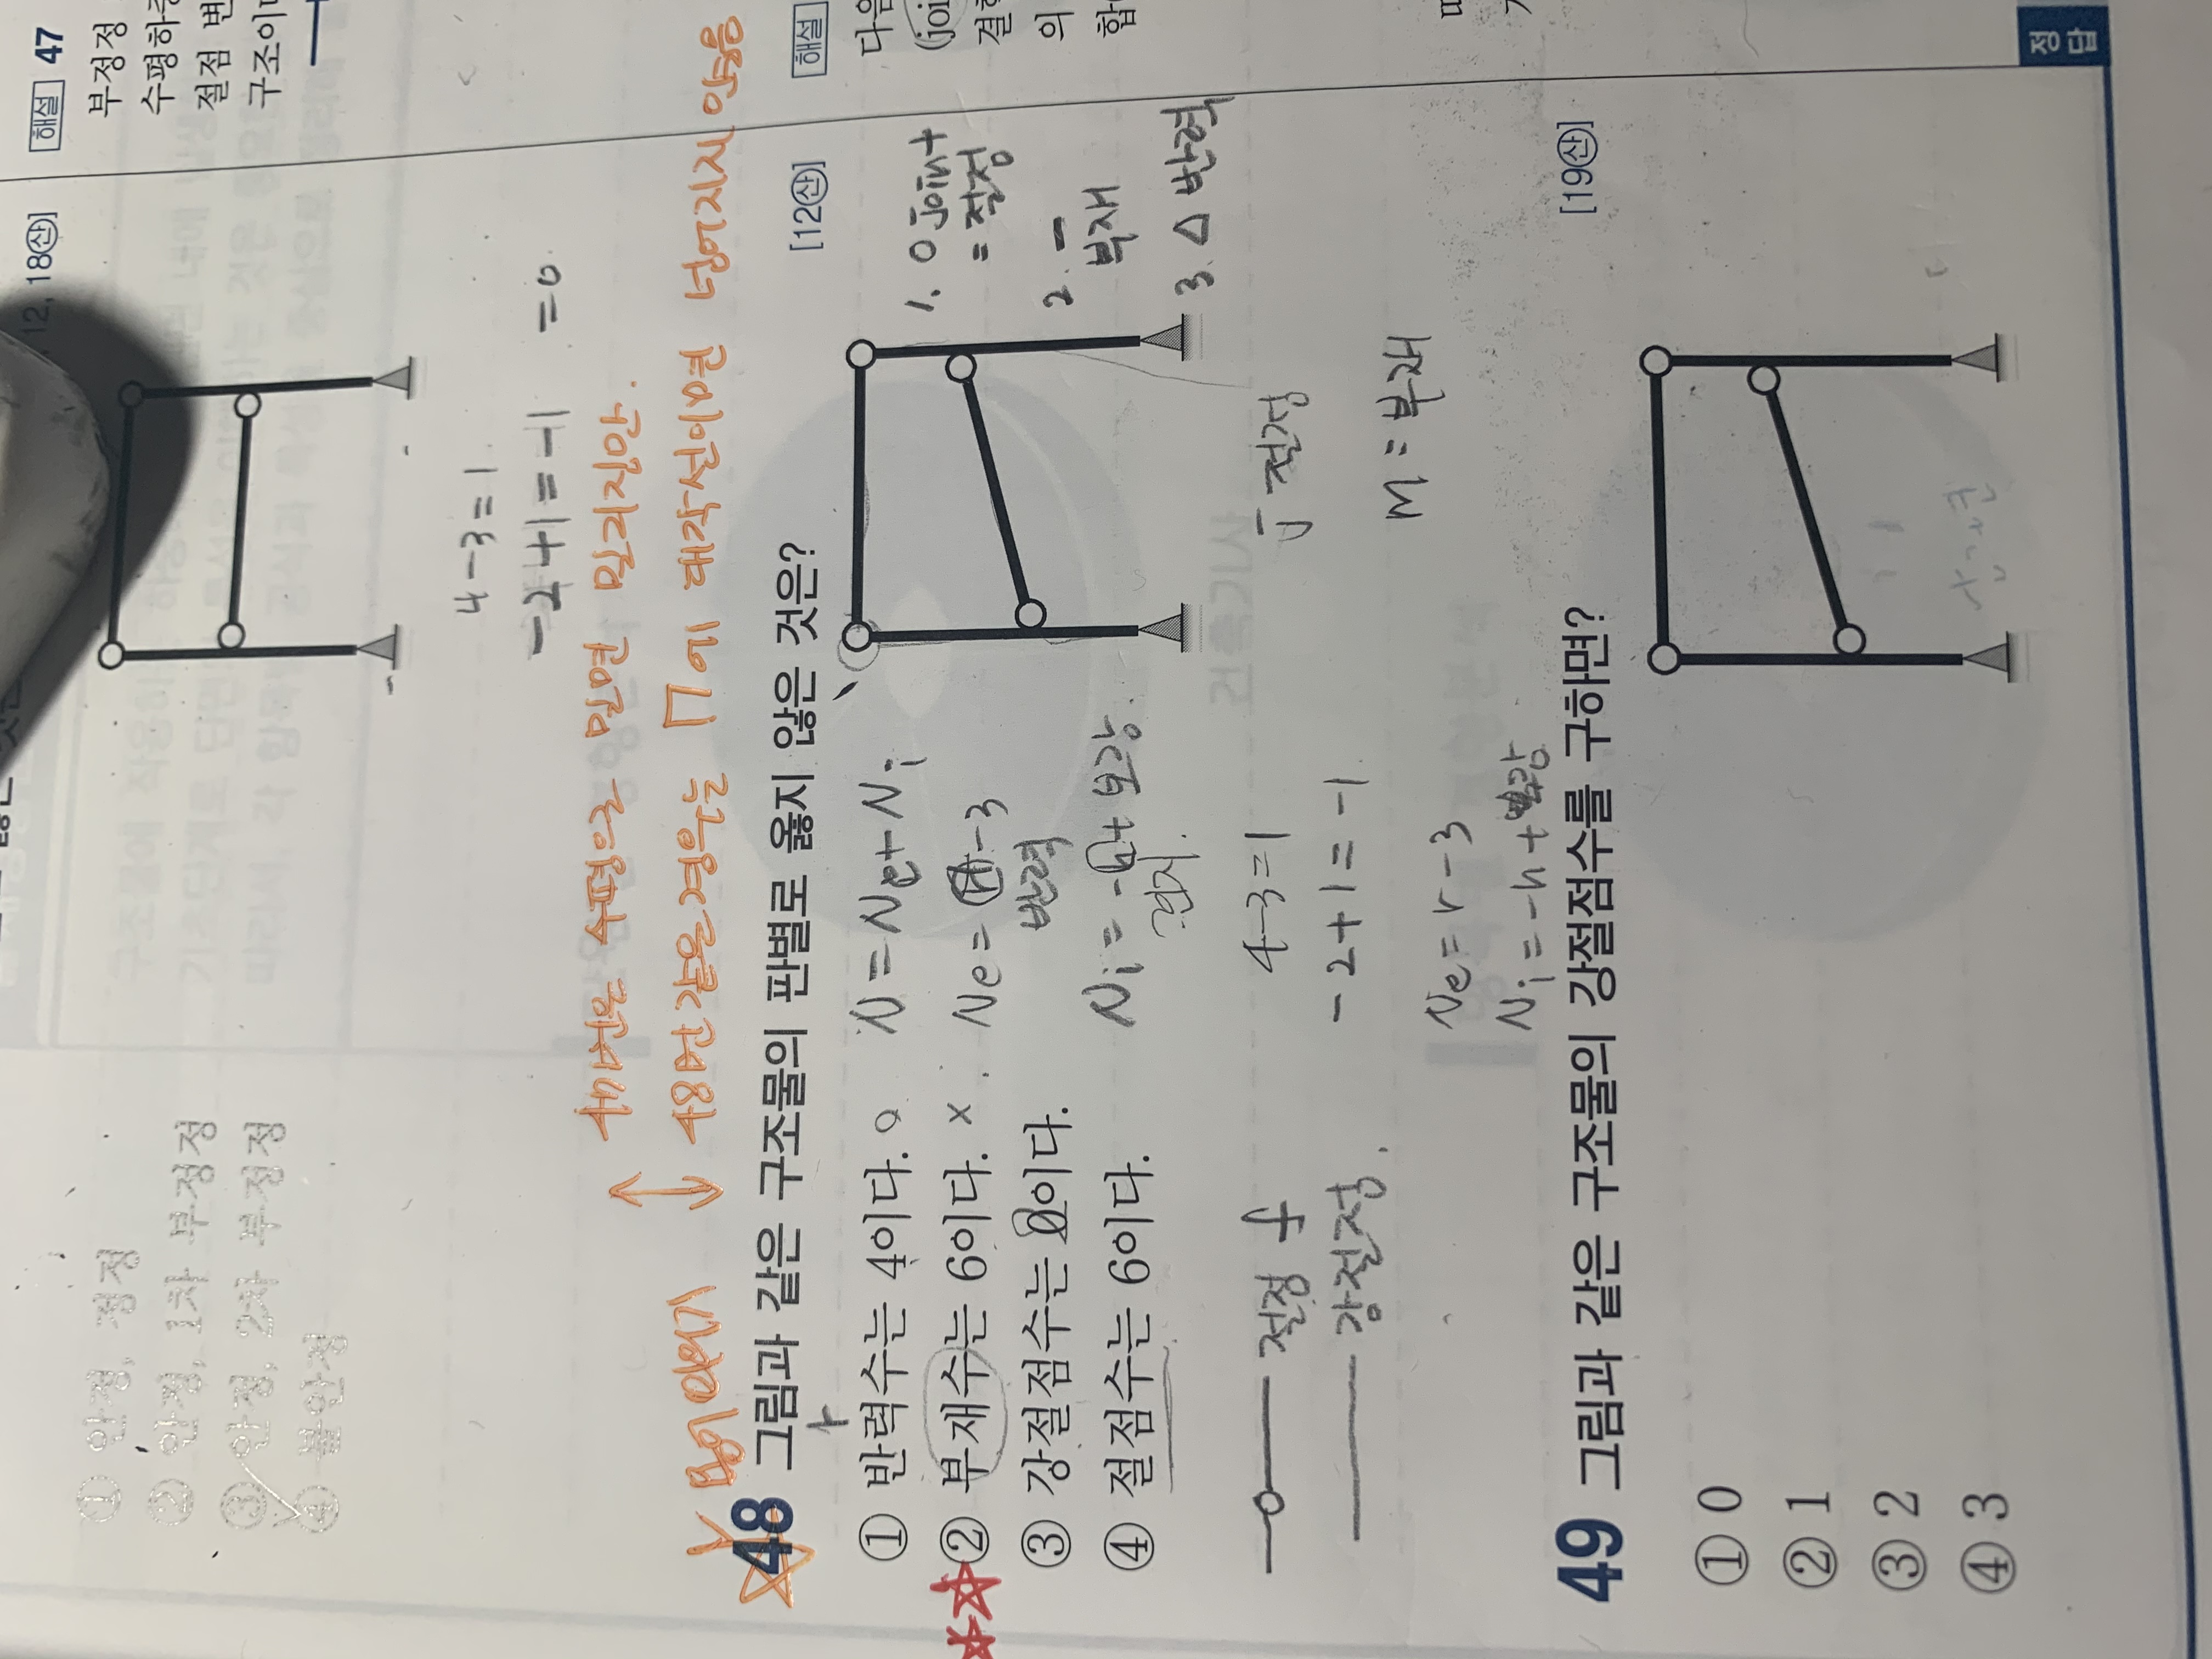 12, 18㉦]
① 안정, 정정
② 안정, 1차 부정정
③ 안정, 2차 부정정
④ 불안정
4-3=1
-2+1=-1 =0
47번은 수평으로 밀면 밀리지만.
48번같은경우는 ㄇ에 대각선이면 넘어지지않음
48 그림과 같은 구조물의 판별로 옳지 않은 것은?
[12㉦]
r
① 반력수는 4이다. o
② 부재수는 6이다. x
③ 강절점수는 이다.
④ 절점수는 6이다.
N=Ne+Ni
Ne= -3
반력
Ni=-h+보강.
힌지.
4-3=1
-2+1=-1
1. O Joint
=절점
2. -
부재
3. △ 반력
j 절점
M=부재
절점 f
강절점.
Ne=r-3
Ni=-h+보강
49 그림과 같은 구조물의 강절점수를 구하면?
[19㉦]
① 0
② 1
③ 2
④ 3
해설 47
부정정
수평하
절점 변
구조이
해설
다음
(joi
결
의
합
정답